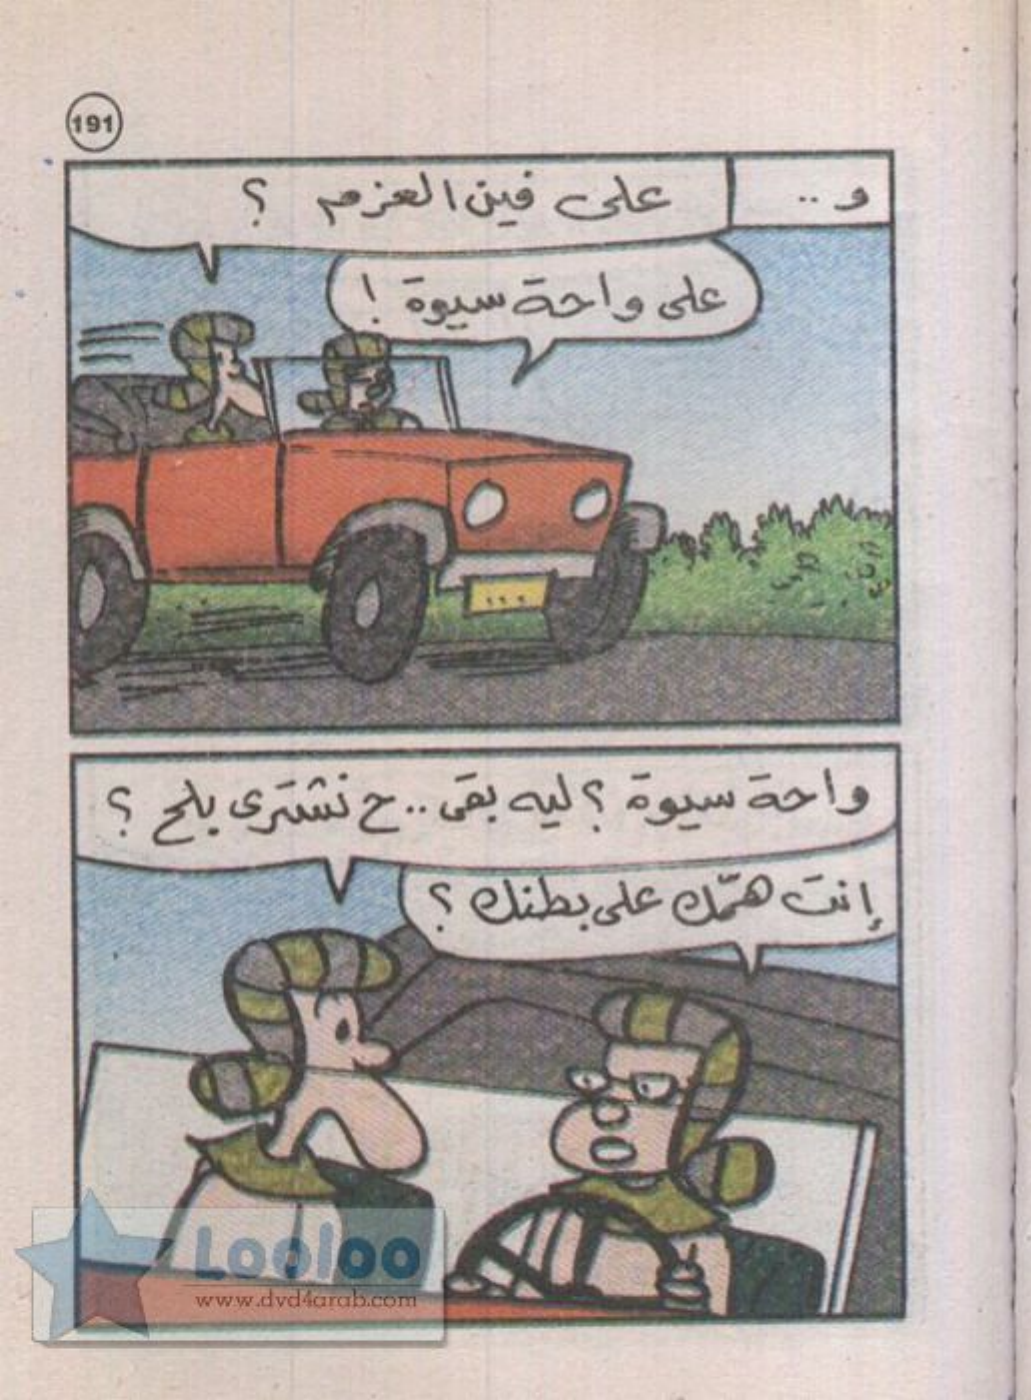 191
و ..
على فين العزم ؟
على واحة سيوة !
واحة سيوة ؟ ليه بقى .. ح نشترى بلح ؟
إنت همّك على بطنك ؟
Looloo
www.dvd4arab.com